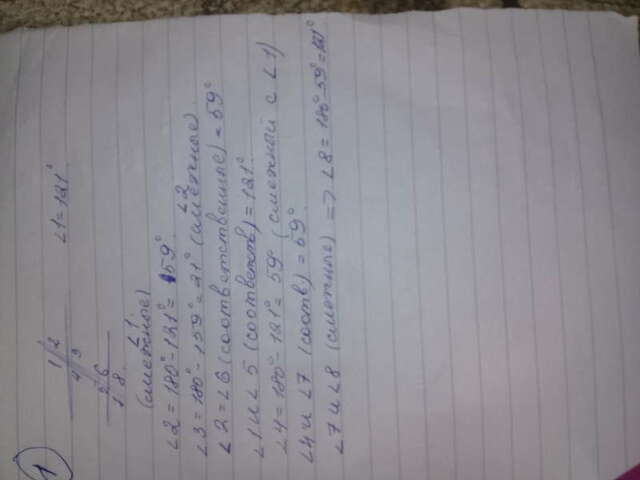 1
1 2
∠1=121°
4 3
5 6
7 8
∠1
(смежные)
∠2 = 180°-121°= 59°
∠3 = 180°-159°=21° (смежные) ∠2
∠2=∠6 (соответственные) = 59°
∠1 и ∠5 (соответств) = 121°
∠4=180°-121°= 59° (смежный с ∠1)
∠4 и ∠7 (соотв) = 59°
∠7 и ∠8 (смежные) => ∠8 = 180°-59°=121°